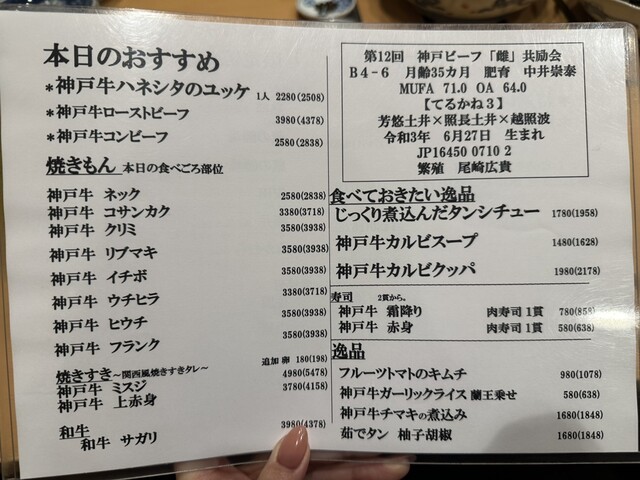 本日のおすすめ
*神戸牛ハネシタのユッケ 1人 2280(2508)
*神戸牛ローストビーフ 3980(4378)
*神戸牛コンビーフ 2580(2838)
焼きもん 本日の食べごろ部位
神戸牛 ネック 2580(2838)
神戸牛 コサンカク 3380(3718)
神戸牛 クリミ 3580(3938)
神戸牛 リブマキ 3580(3938)
神戸牛 イチボ 3580(3938)
神戸牛 ウチヒラ 3380(3718)
神戸牛 ヒウチ 3580(3938)
神戸牛 フランク 3580(3938)
追加 卵 180(198)
焼きすき~関西風焼きすきタレ~ 4980(5478)
神戸牛 ミスジ 3780(4158)
神戸牛 上赤身
和牛 3980(4378)
和牛 サガリ
第12回 神戸ビーフ「雌」共励会
B4-6 月齢35カ月 肥育 中井崇泰
MUFA 71.0 OA 64.0
【てるかね3】
芳悠土井×照長土井×越照波
令和3年 6月27日 生まれ
JP16450 0710 2
繁殖 尾崎広貴
食べておきたい逸品
じっくり煮込んだタンシチュー 1780(1958)
神戸牛カルビスープ 1480(1628)
神戸牛カルビクッパ 1980(2178)
寿司 2貫から。
神戸牛 霜降り 肉寿司 1貫 780(858)
神戸牛 赤身 肉寿司 1貫 580(638)
逸品
フルーツトマトのキムチ 980(1078)
神戸牛ガーリックライス 蘭王乗せ 580(638)
神戸牛チマキの煮込み 1680(1848)
茹でタン 柚子胡椒 1680(1848)